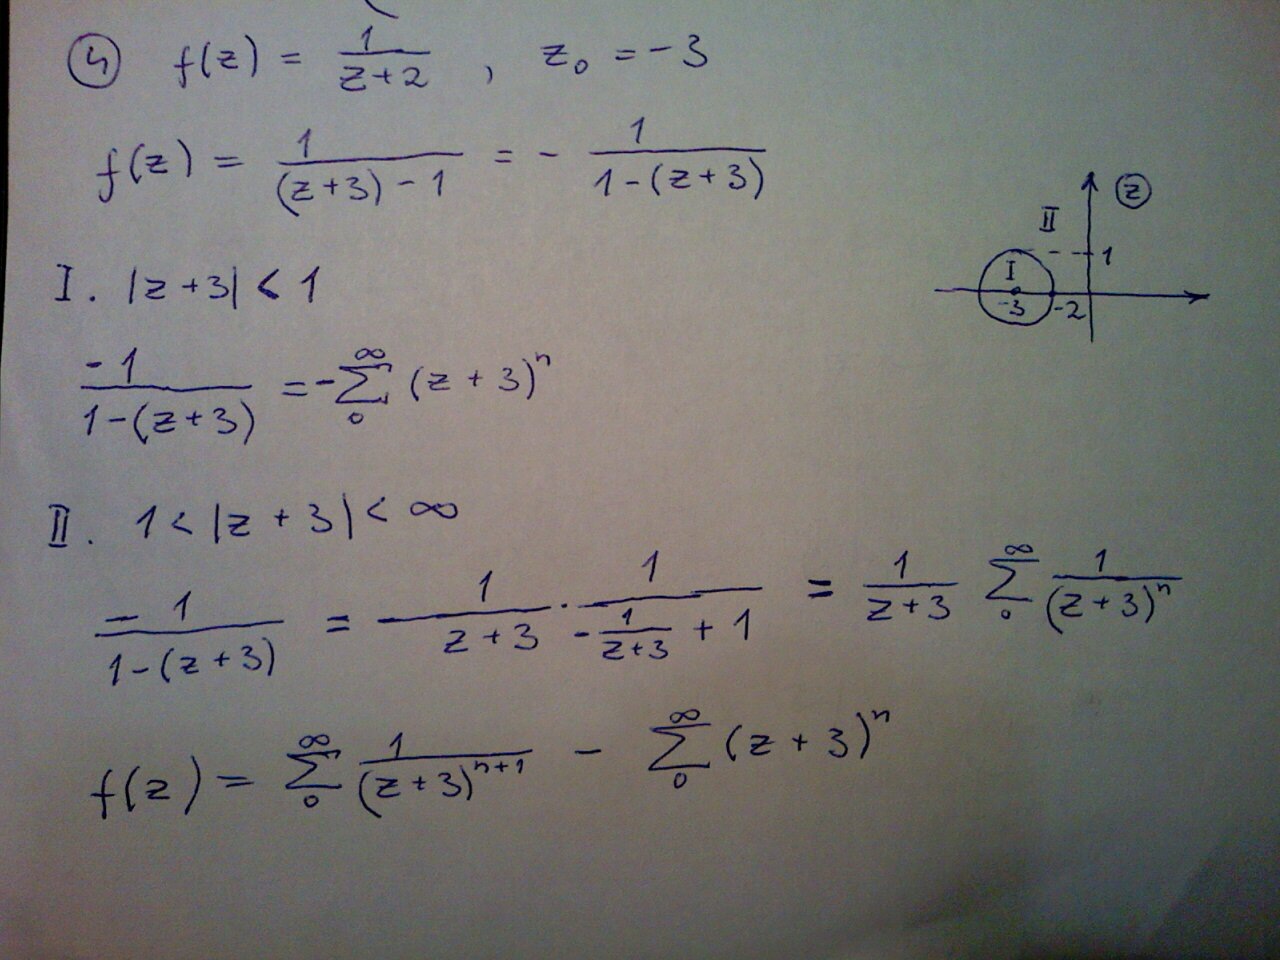 ④ f(z) = 1/(z+2) , z₀ = -3
f(z) = 1/((z+3) - 1) = - 1/(1-(z+3))
II ⓩ
1
I
-3 -2
I. |z+3| < 1
-1/(1-(z+3)) = - ∑₀^∞ (z+3)ⁿ
II. 1 < |z+3| < ∞
-1/(1-(z+3)) = - 1/(z+3) · 1/(-1/(z+3) + 1) = 1/(z+3) ∑₀^∞ 1/(z+3)ⁿ
f(z) = ∑₀^∞ 1/(z+3)ⁿ⁺¹ - ∑₀^∞ (z+3)ⁿ